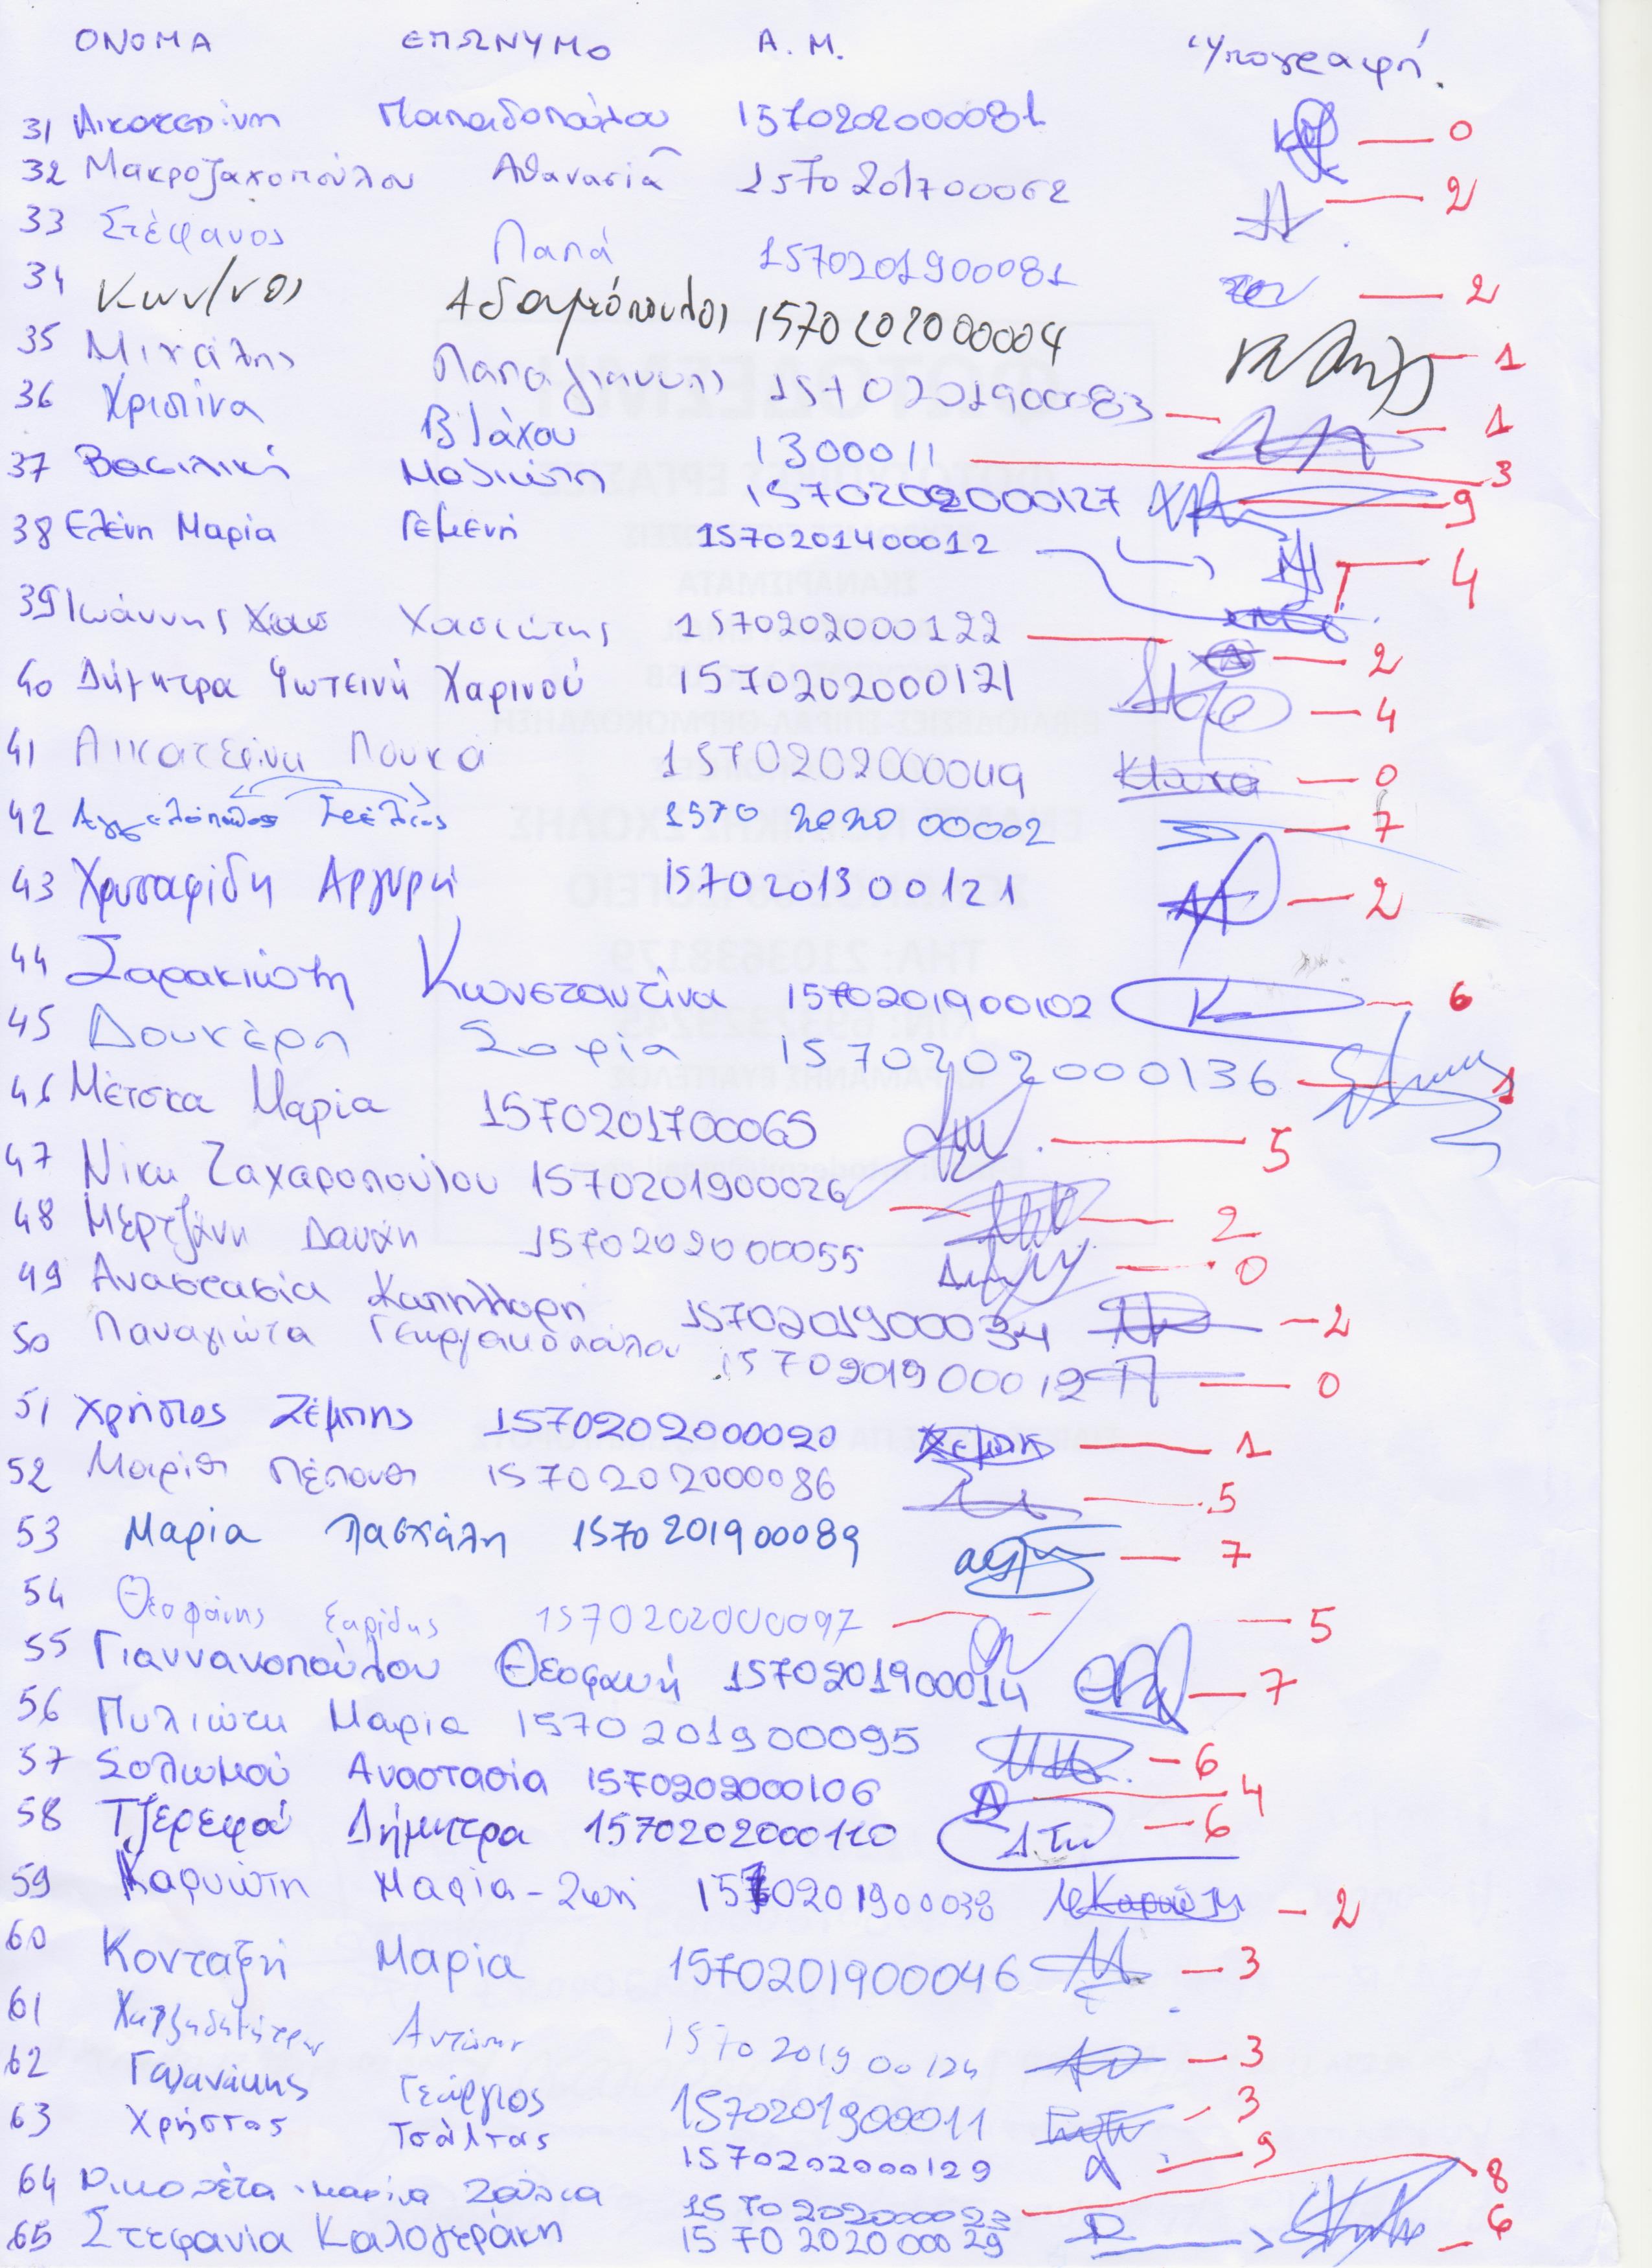 ΟΝΟΜΑ ΕΠΩΝΥΜΟ Α.Μ. Υπογραφή.
31 Αικατερίνη Παπαδοπούλου 1570202000081 0
32 Μακροζαχοπούλου Αθανασία 1570201700062 2
33 Στέφανος Παπά 1570201900081 2
34 Κων/νος Αδαμόπουλος 1570202000004 1
35 Μιχάλης Παπαγιάννης 1570201900083 1
36 Χριστίνα Βλάχου 1300011 3
37 Βασιλική 1570202000127 9
38 Ελένη Μαρία Γεμενή 1570201400012 4
39 Ιωάννης Χασιώτης 1570202000122 2
40 Δήμητρα Φωτεινή Χαρινού 1570202000121 4
41 Αικατερίνη Λουκά 1570202000049 0
42 Αγγελόπουλος 1570202000002 7
43 Χρυσαφίδη Αργυρή 1570201300121 2
44 Σαρακιώτη Κωνσταντίνα 1570201900102 6
45 Δουκέρη Σοφία 1570202000136 1
46 Μέτσκα Μαρία 1570201700065 5
47 Νίκη Ζαχαροπούλου 1570201900026 2
48 Μερτζάνη Δανάη 1570202000055 0
49 Αναστασία Καπηλιάρη 1570201900034 2
50 Παναγιώτα Γεωργακοπούλου 1570201900012 0
51 Χρήστος Ζέμπης 1570202000020 1
52 Μαρίθι Πέππυθι 1570202000086 5
53 Μαρία Πασχάλη 1570201900089 7
54 Θεοφάνης Σαρίδης 1570202000097 5
55 Γιαννακοπούλου Θεοφανή 1570201900014 7
56 Πυλιώτη Μαρία 1570201900095 6
57 Σολωμού Αναστασία 1570202000106 4
58 Τζερεφά Δήμητρα 1570202000110 Δ.Τζ 6
59 Καρυώτη Μαρία-Ζωή 1570201900038 Καρυώτη 2
60 Κονταξή Μαρία 1570201900046 3
61 Χατζηδημήτρης Αντώνης 1570201900124 3
62 Γαλανάκης Γεώργιος 1570201900011 3
63 Χρήστος Τσάλτας 1570202000129 9
64 Νικολέτα-Μαρίνα Ζούλια 1570202000023 8
65 Στεφανία Καλογεράκη 1570202000029 6